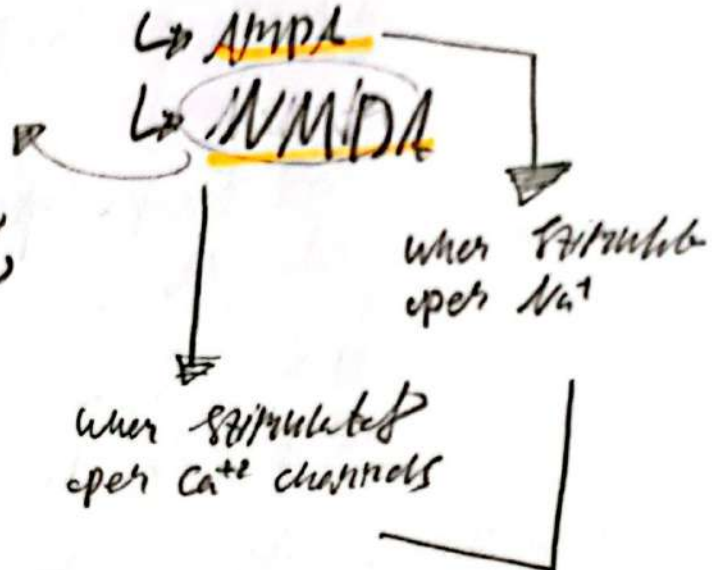 ↳ AMPA
↳ NMDA
when stimulate
open Na⁺
when stimulated
open Ca⁺² channels